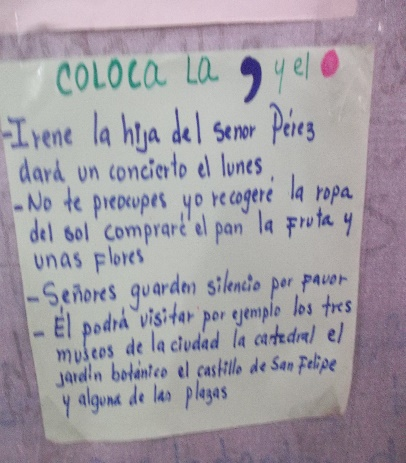 COLOCA LA , y el .
-Irene la hija del Senor Pérez
dará un concierto el lunes
-No te preocupes yo recogeré la ropa
del sol compraré el pan la Fruta y
unas Flores
-Señores guarden silencio por Favor
-Él podrá visitar por ejemplo los tres
museos de la ciudad la catedral el
Jardín botánico el castillo de San Felipe
y alguna de las plazas